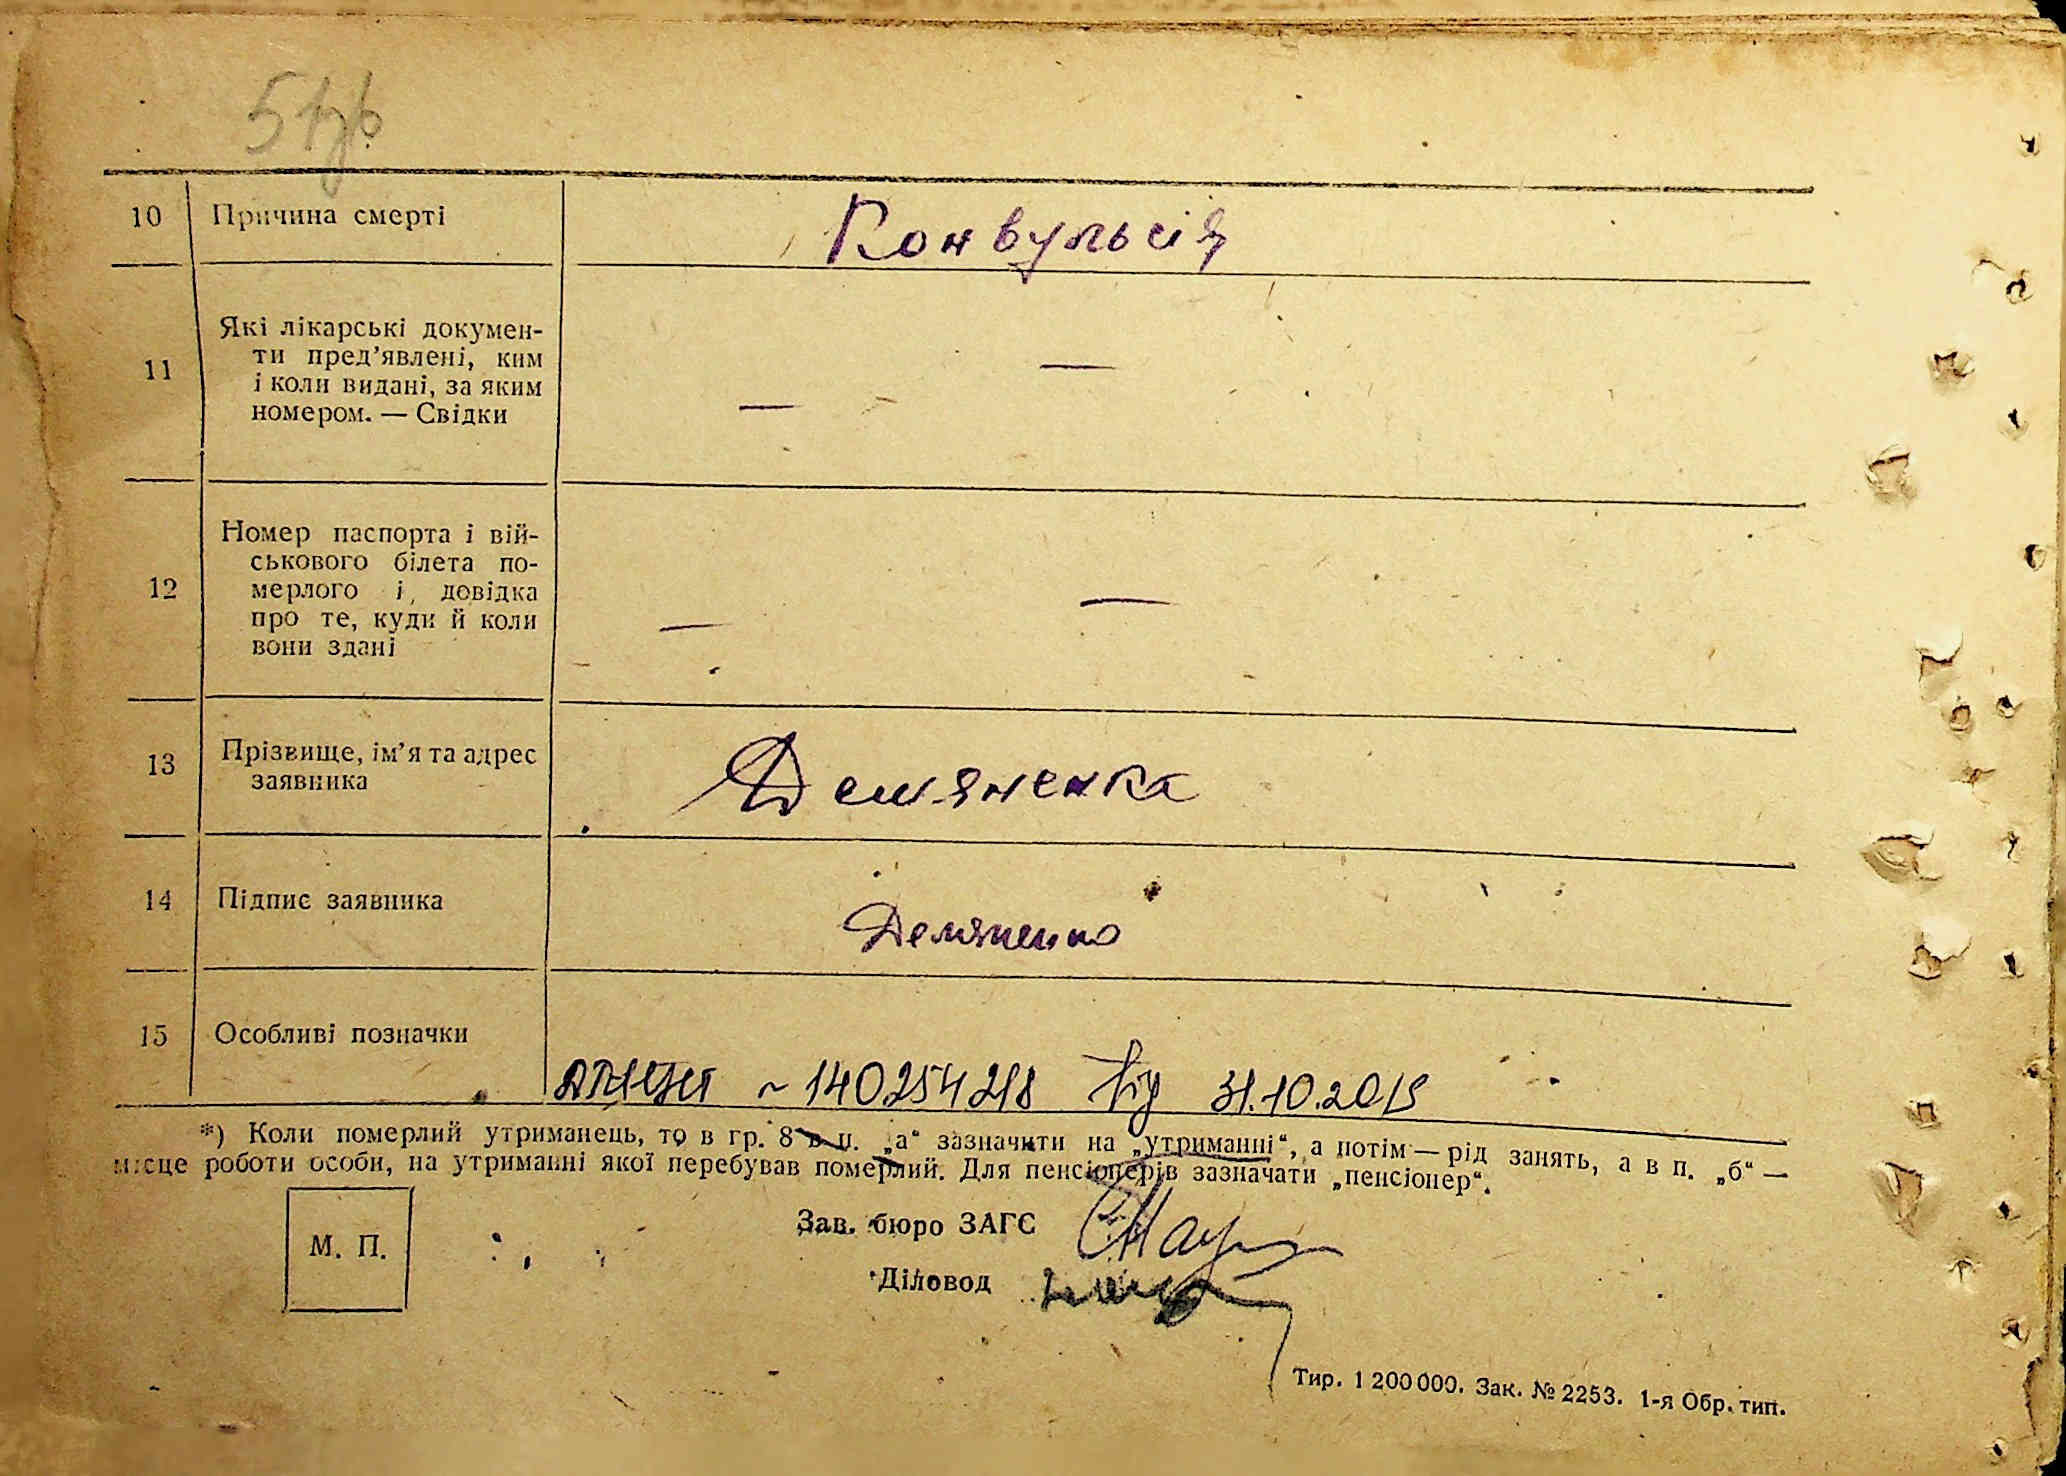 10 Причина смерті Конвульсія
11 Які лікарські докумен-
ти пред’явлені, ким
і коли видані, за яким
номером. — Свідки — —
12 Номер паспорта і вій-
ськового білета по-
мерлого і, довідка
про те, куди й коли
вони здані — —
13 Прізвище, ім’я та адрес
заявника Демяненка
14 Підпис заявника Демяненко
15 Особливі позначки
140254218 від 31.10.2019
*) Коли померлий утриманець, то в гр. 8 в п. „а“ зазначити на „утриманні“, а потім — рід занять, а в п. „б“ —
місце роботи особи, на утриманні якої перебував померлий. Для пенсіонерів зазначати „пенсіонер“.
М. П.
Зав. бюро ЗАГС
Діловод
Тир. 1 200 000. Зак. № 2253. 1-я Обр. тип.